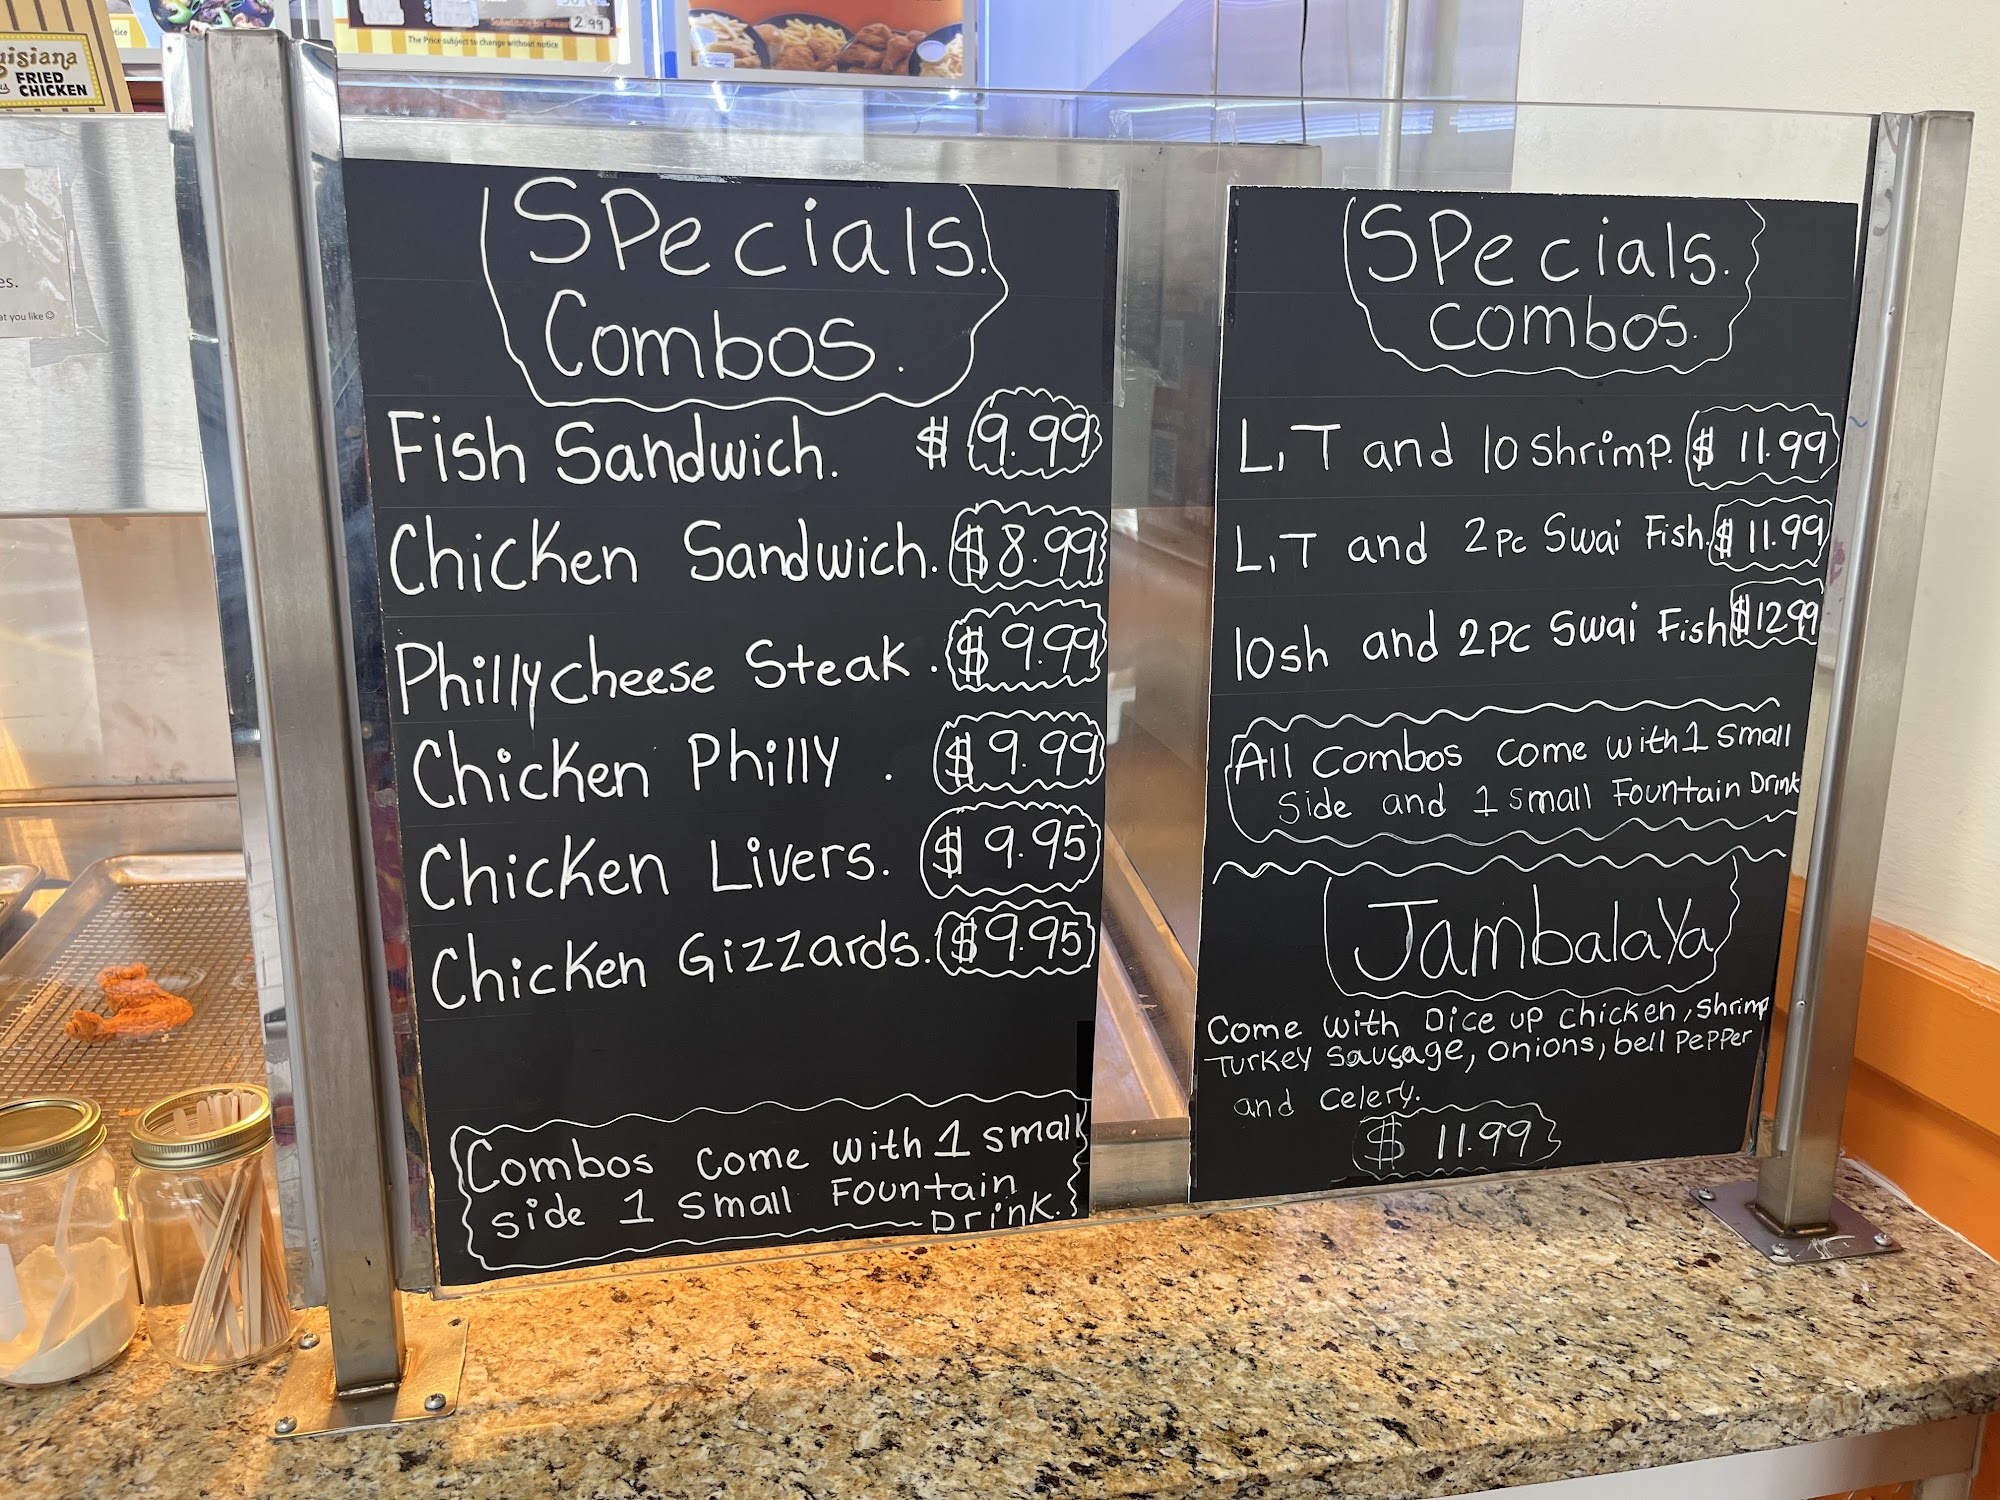 uisiana
FRIED
CHICKEN
Substitute for Breast 2.99
The Price subject to change without notice
es.
at you like ☺
SPecials.
Combos.
Fish Sandwich. $ 9.99
Chicken Sandwich. $8.99
Phillycheese Steak. $9.99
Chicken Philly. $9.99
Chicken Livers. $9.95
Chicken Gizzards. $9.95
Combos come with 1 small
side 1 small Fountain
Drink.
SPecials.
combos.
L,T and 10 shrimp. $ 11.99
L,T and 2pc Swai Fish. $ 11.99
10sh and 2PC Swai Fish $12.99
All combos come with 1 small
side and 1 small Fountain Drink
JambalaYa
Come with Dice up chicken, shrimp
Turkey sausage, onions, bell PePPer
and celery.
$ 11.99